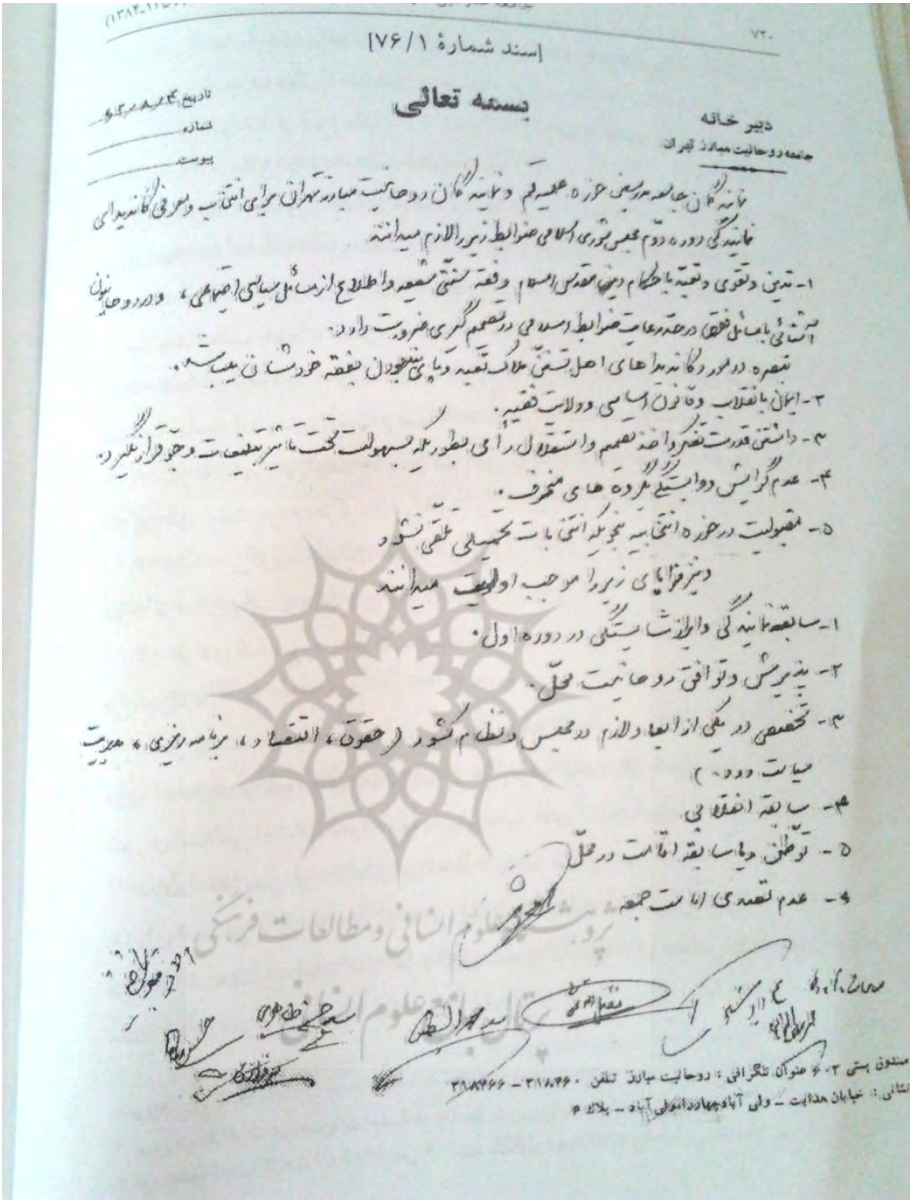 ۷۲۰
[سند شمارهٔ ۷۶/۱]
بسمه تعالی
دبیر خانه
جامعه روحانیت مبارز تهران
تاریخ
شماره
پیوست
نمایندگان جامعه مدرسین حوزه علمیه قم و نمایندگان روحانیت مبارز تهران برای انتخاب و معرفی کاندیدای
نمایندگی دوره دوم مجلس شورای اسلامی ضوابط زیر را لازم میدانند
۱- تدین و تقوی و تقید باحکام دین مقدس اسلام و فقه سنتی شیعه و اطلاع از مسائل سیاسی اجتماعی، و در روحانیون
آشنائی با مسائل فقهی در حد رعایت ضوابط اسلامی در تصمیم گیری ضرورت دارد.
تبصره در مورد کاندیداهای اهل تسنن ملاک تقید و پای بند بودن بفقه خودشان میباشد.
۲- ایمان بانقلاب و قانون اساسی و ولایت فقیه.
۳- داشتن قدرت تفکر و اخذ تصمیم و استقلال رأی بطوریکه بسهولت تحت تاثیر تبلیغات و جو قرار نگیرد.
۴- عدم گرایش و وابستگی بگروه های منحرف.
۵- مقبولیت در حوزه انتخابیه بنحویکه انتخابات تحمیلی تلقی نشود
و نیز مزایای زیر را موجب اولویت میدانند
۱- سابقه نمایندگی و ابراز شایستگی در دوره اول.
۲- پذیرش و توافق روحانیت محل.
۳- تخصص در یکی از ابعاد لازم در مجلس و نظام کشور (حقوق، اقتصاد، برنامه ریزی، مدیریت
سیاست و و و)
۴- سابقه انقلابی
۵- توطن و یا سابقه اقامت در محل
۶- عدم تصدی امامت جمعه
پژوهشگاه علوم انسانی و مطالعات فرهنگی
پرتال جامع علوم انسانی
صندوق پستی عنوان تلگرافی: روحانیت مبارز تلفن ۳۱۸۴۶۰ - ۳۱۸۴۶۶
نشانی: خیابان هدایت - ولی آباد چهارراه ولی آباد - پلاک